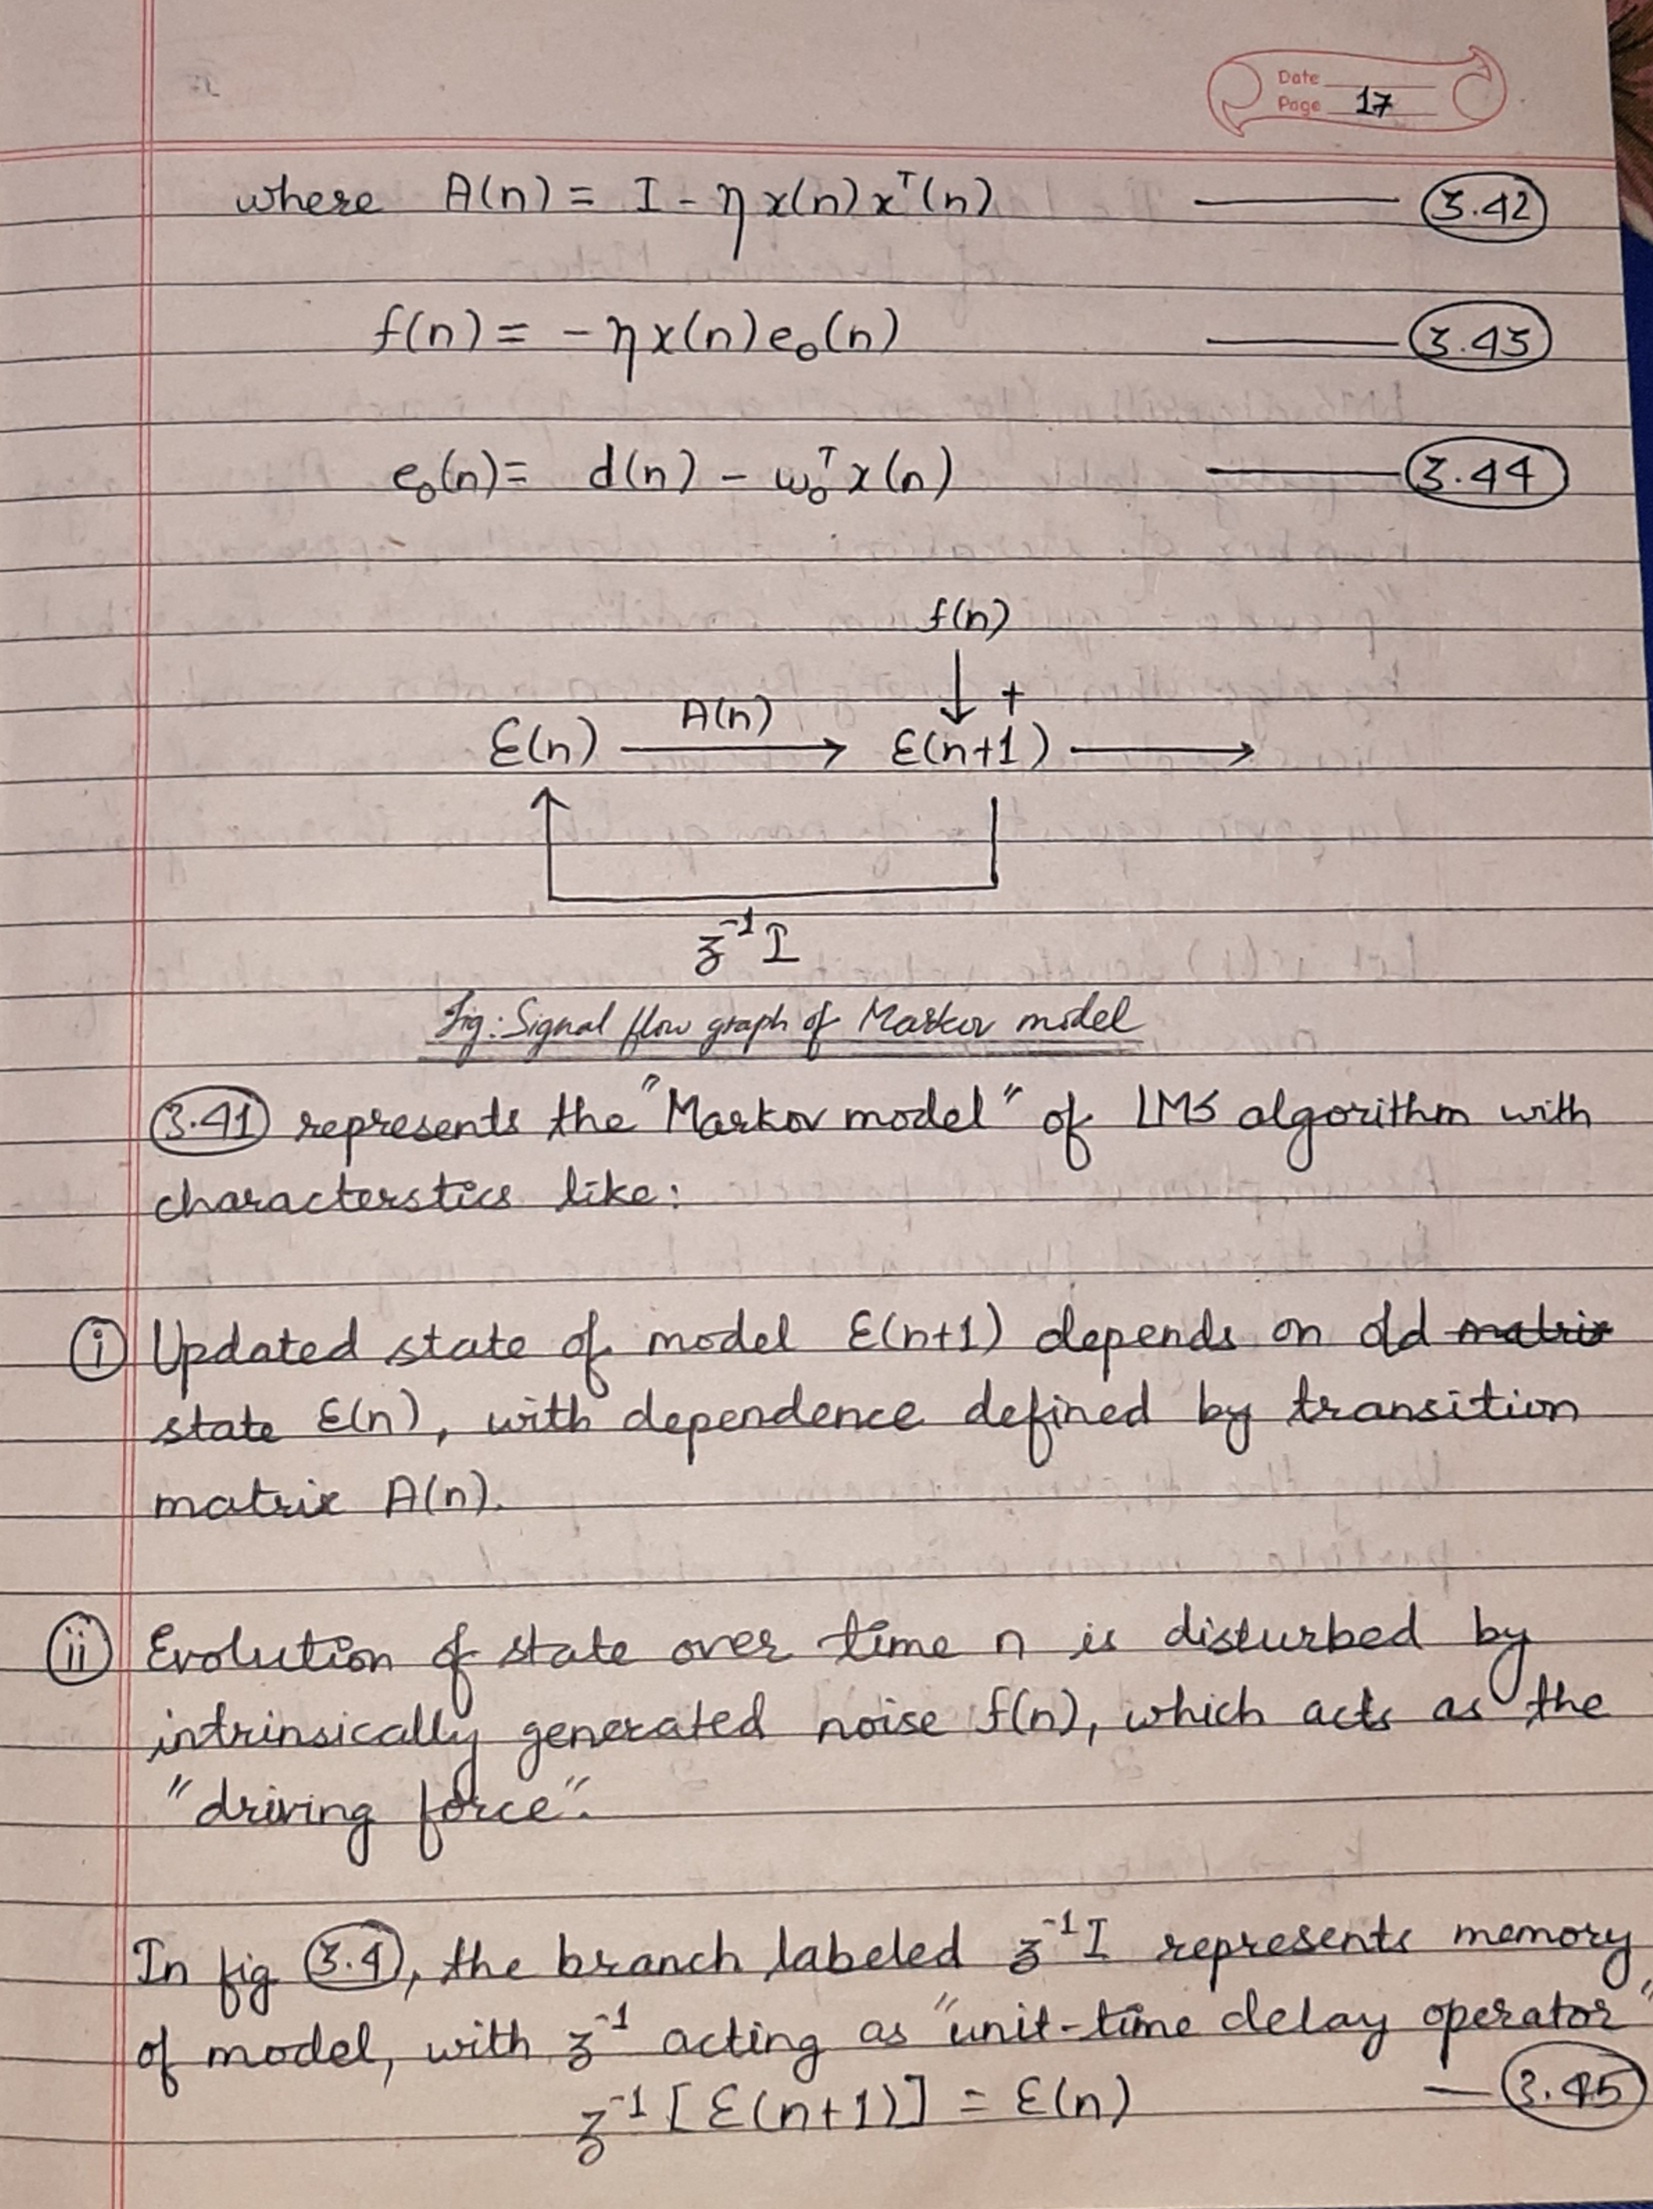 Date
Page 17
where A(n) = I - η x(n) xᵀ(n) (3.42)
f(n) = - η x(n) e₀(n) (3.43)
e₀(n) = d(n) - w₀ᵀ x(n) (3.44)
f(n)
+
A(n)
Ɛ(n) → Ɛ(n+1) →
z⁻¹I
Fig: Signal flow graph of Markov model
(3.41) represents the "Markov model" of LMS algorithm with
characterstics like:
(i) Updated state of model Ɛ(n+1) depends on old matrix
state Ɛ(n), with dependence defined by transition
matrix A(n).
(ii) Evolution of state over time n is disturbed by
intrinsically generated noise f(n), which acts as the
"driving force".
In fig (3.4), the branch labeled z⁻¹I represents memory
of model, with z⁻¹ acting as "unit-time delay operator"
z⁻¹[Ɛ(n+1)] = Ɛ(n) (3.45)